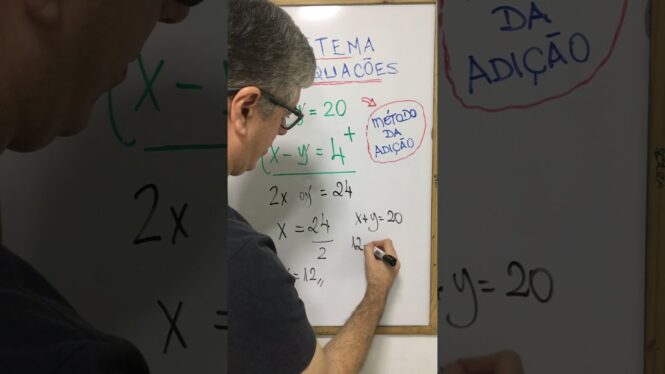 TEMA
QUAÇÕES
y = 20
x - y = 4 +
MÉTODO
DA
ADIÇÃO
2x oy = 24
x = 24
2
= 12,,
x + y = 20
12
DA
ADIÇÃO
x -
2x
x =
y = 20